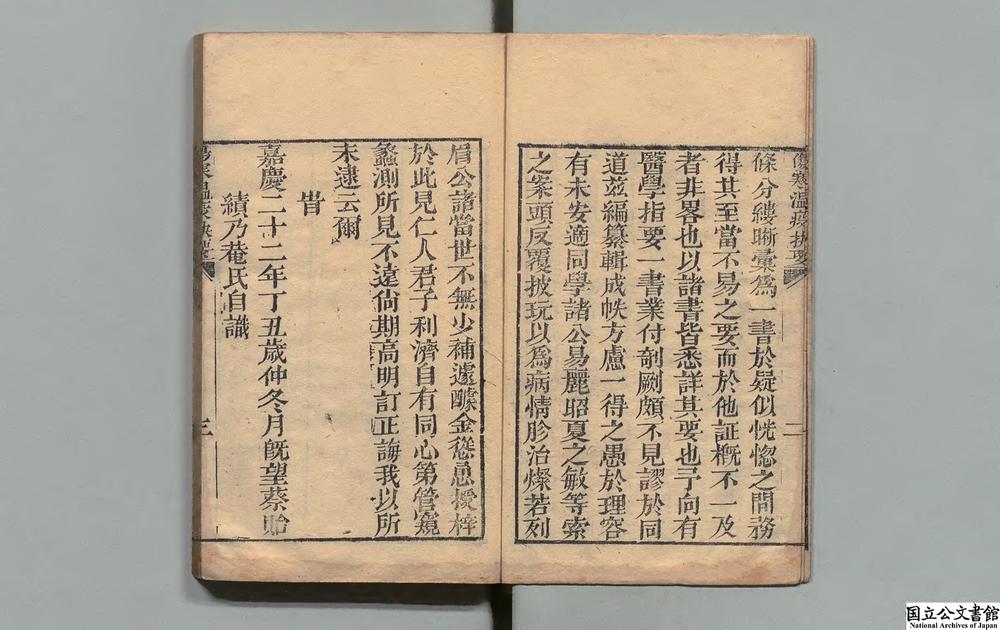 傷寒温疫抉要
二
條分縷晰彙爲一書於疑似恍惚之間務
得其至當不易之要而於他証槪不一及
者非畧也以諸書皆悉詳其要也予向有
醫學指要一書業付剞劂頗不見謬於同
道茲編纂輯成帙方慮一得之愚於理容
有未安適同學諸公易麗昭夏之敏等索
之案頭反覆披玩以爲病情胗治燦若列
眉公諸當世不無少補遽醵金慫恿授梓
於此見仁人君子利濟自有同心第管窺
蠡測所見不遠尙期高明訂正誨我以所
未逮云爾
旹
嘉慶二十二年丁丑歲仲冬月旣望蔡貽
績乃菴氏自識
三
国立公文書館
National Archives of Japan